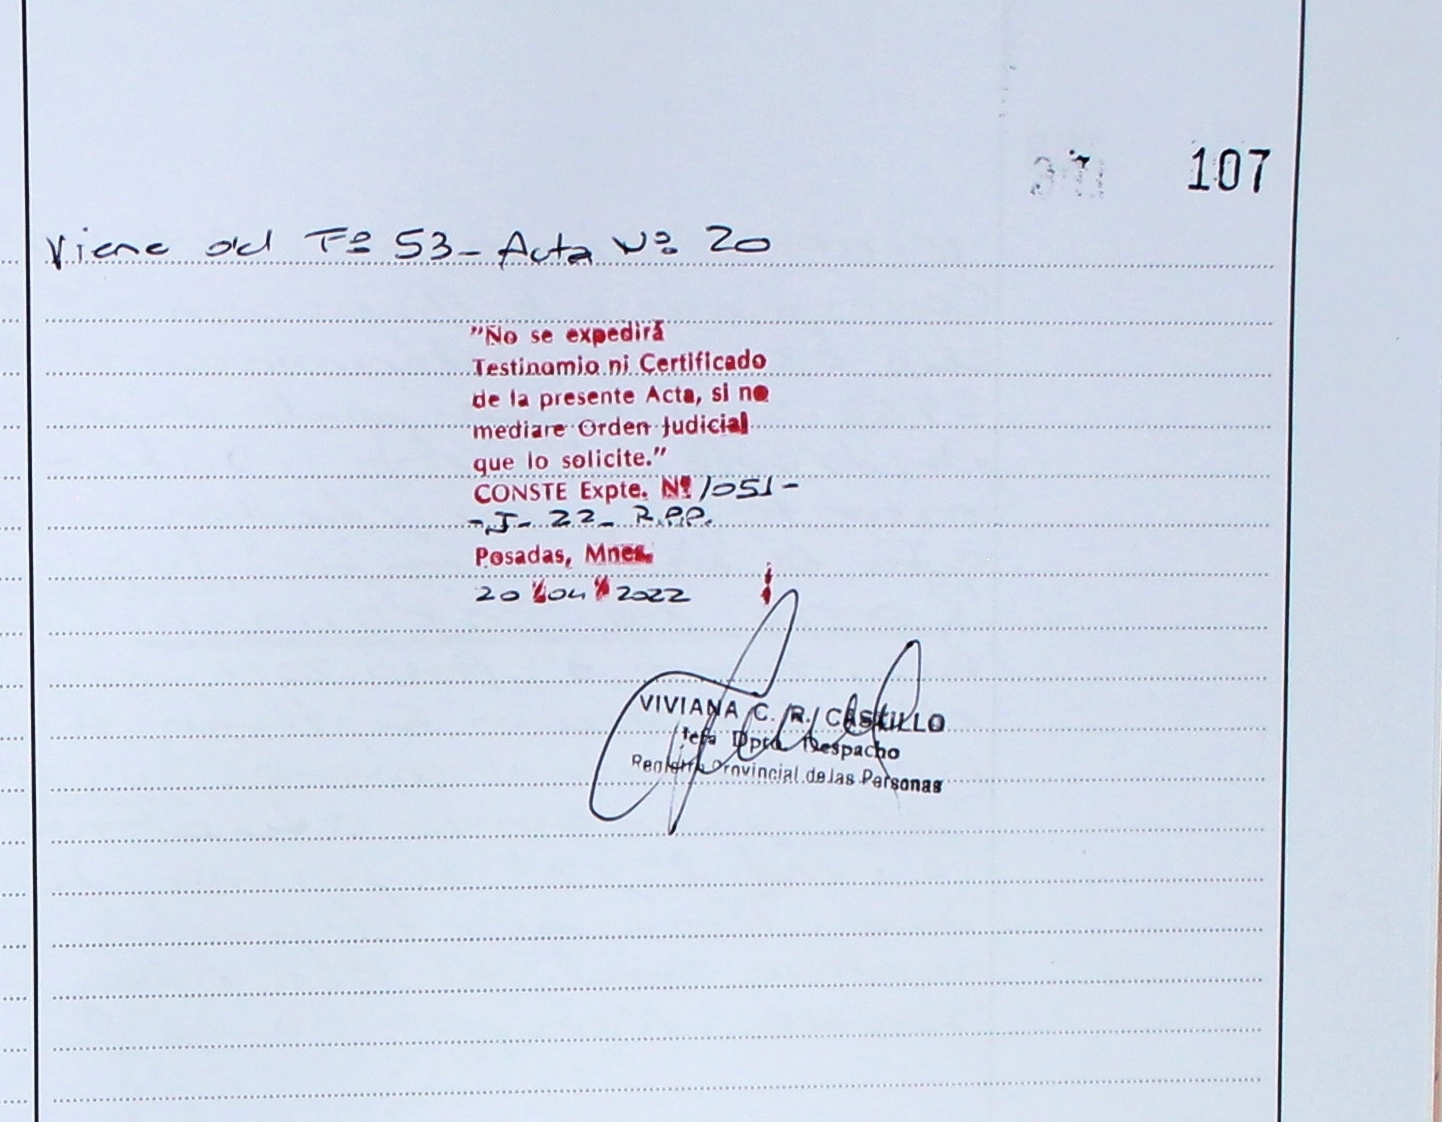 107
Viene del Fº 53 - Acta Nº 20
"No se expedirá
Testinomio ni Certificado
de la presente Acta, si no
mediare Orden Judicial
que lo solicite."
CONSTE Expte. Nº 1051 -
- J - 22 - R.P.P.
Posadas, Mnes.
20 / 04 / 2022
VIVIANA C. R. CASTILLO
Jefa Dpto. Despacho
Registro Provincial de las Personas